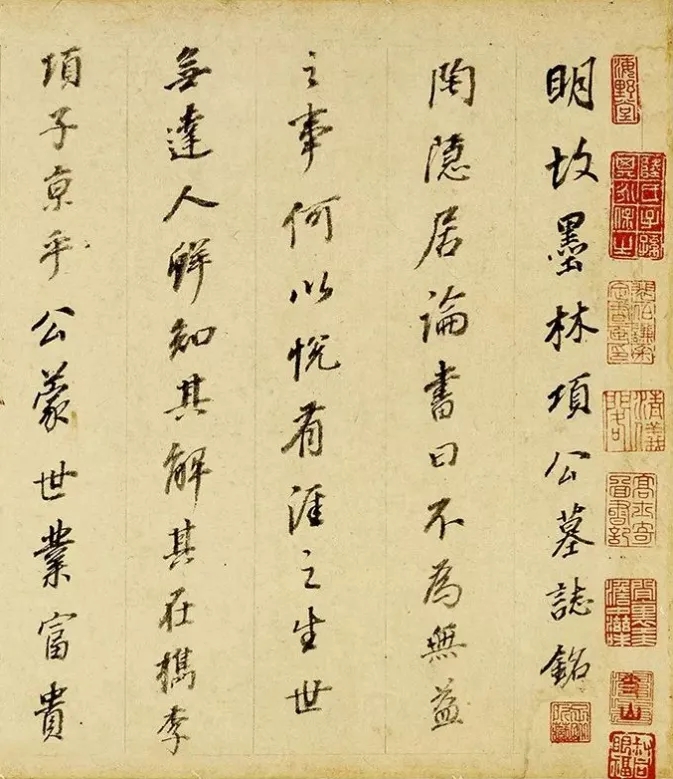 明故墨林項公墓誌銘
陶隱居論書曰不為無益
之事何以悅有涯之生世
無達人觧知其解其在檇李
項子京乎公蒙世業富貴
海野堂
高士奇圖書記